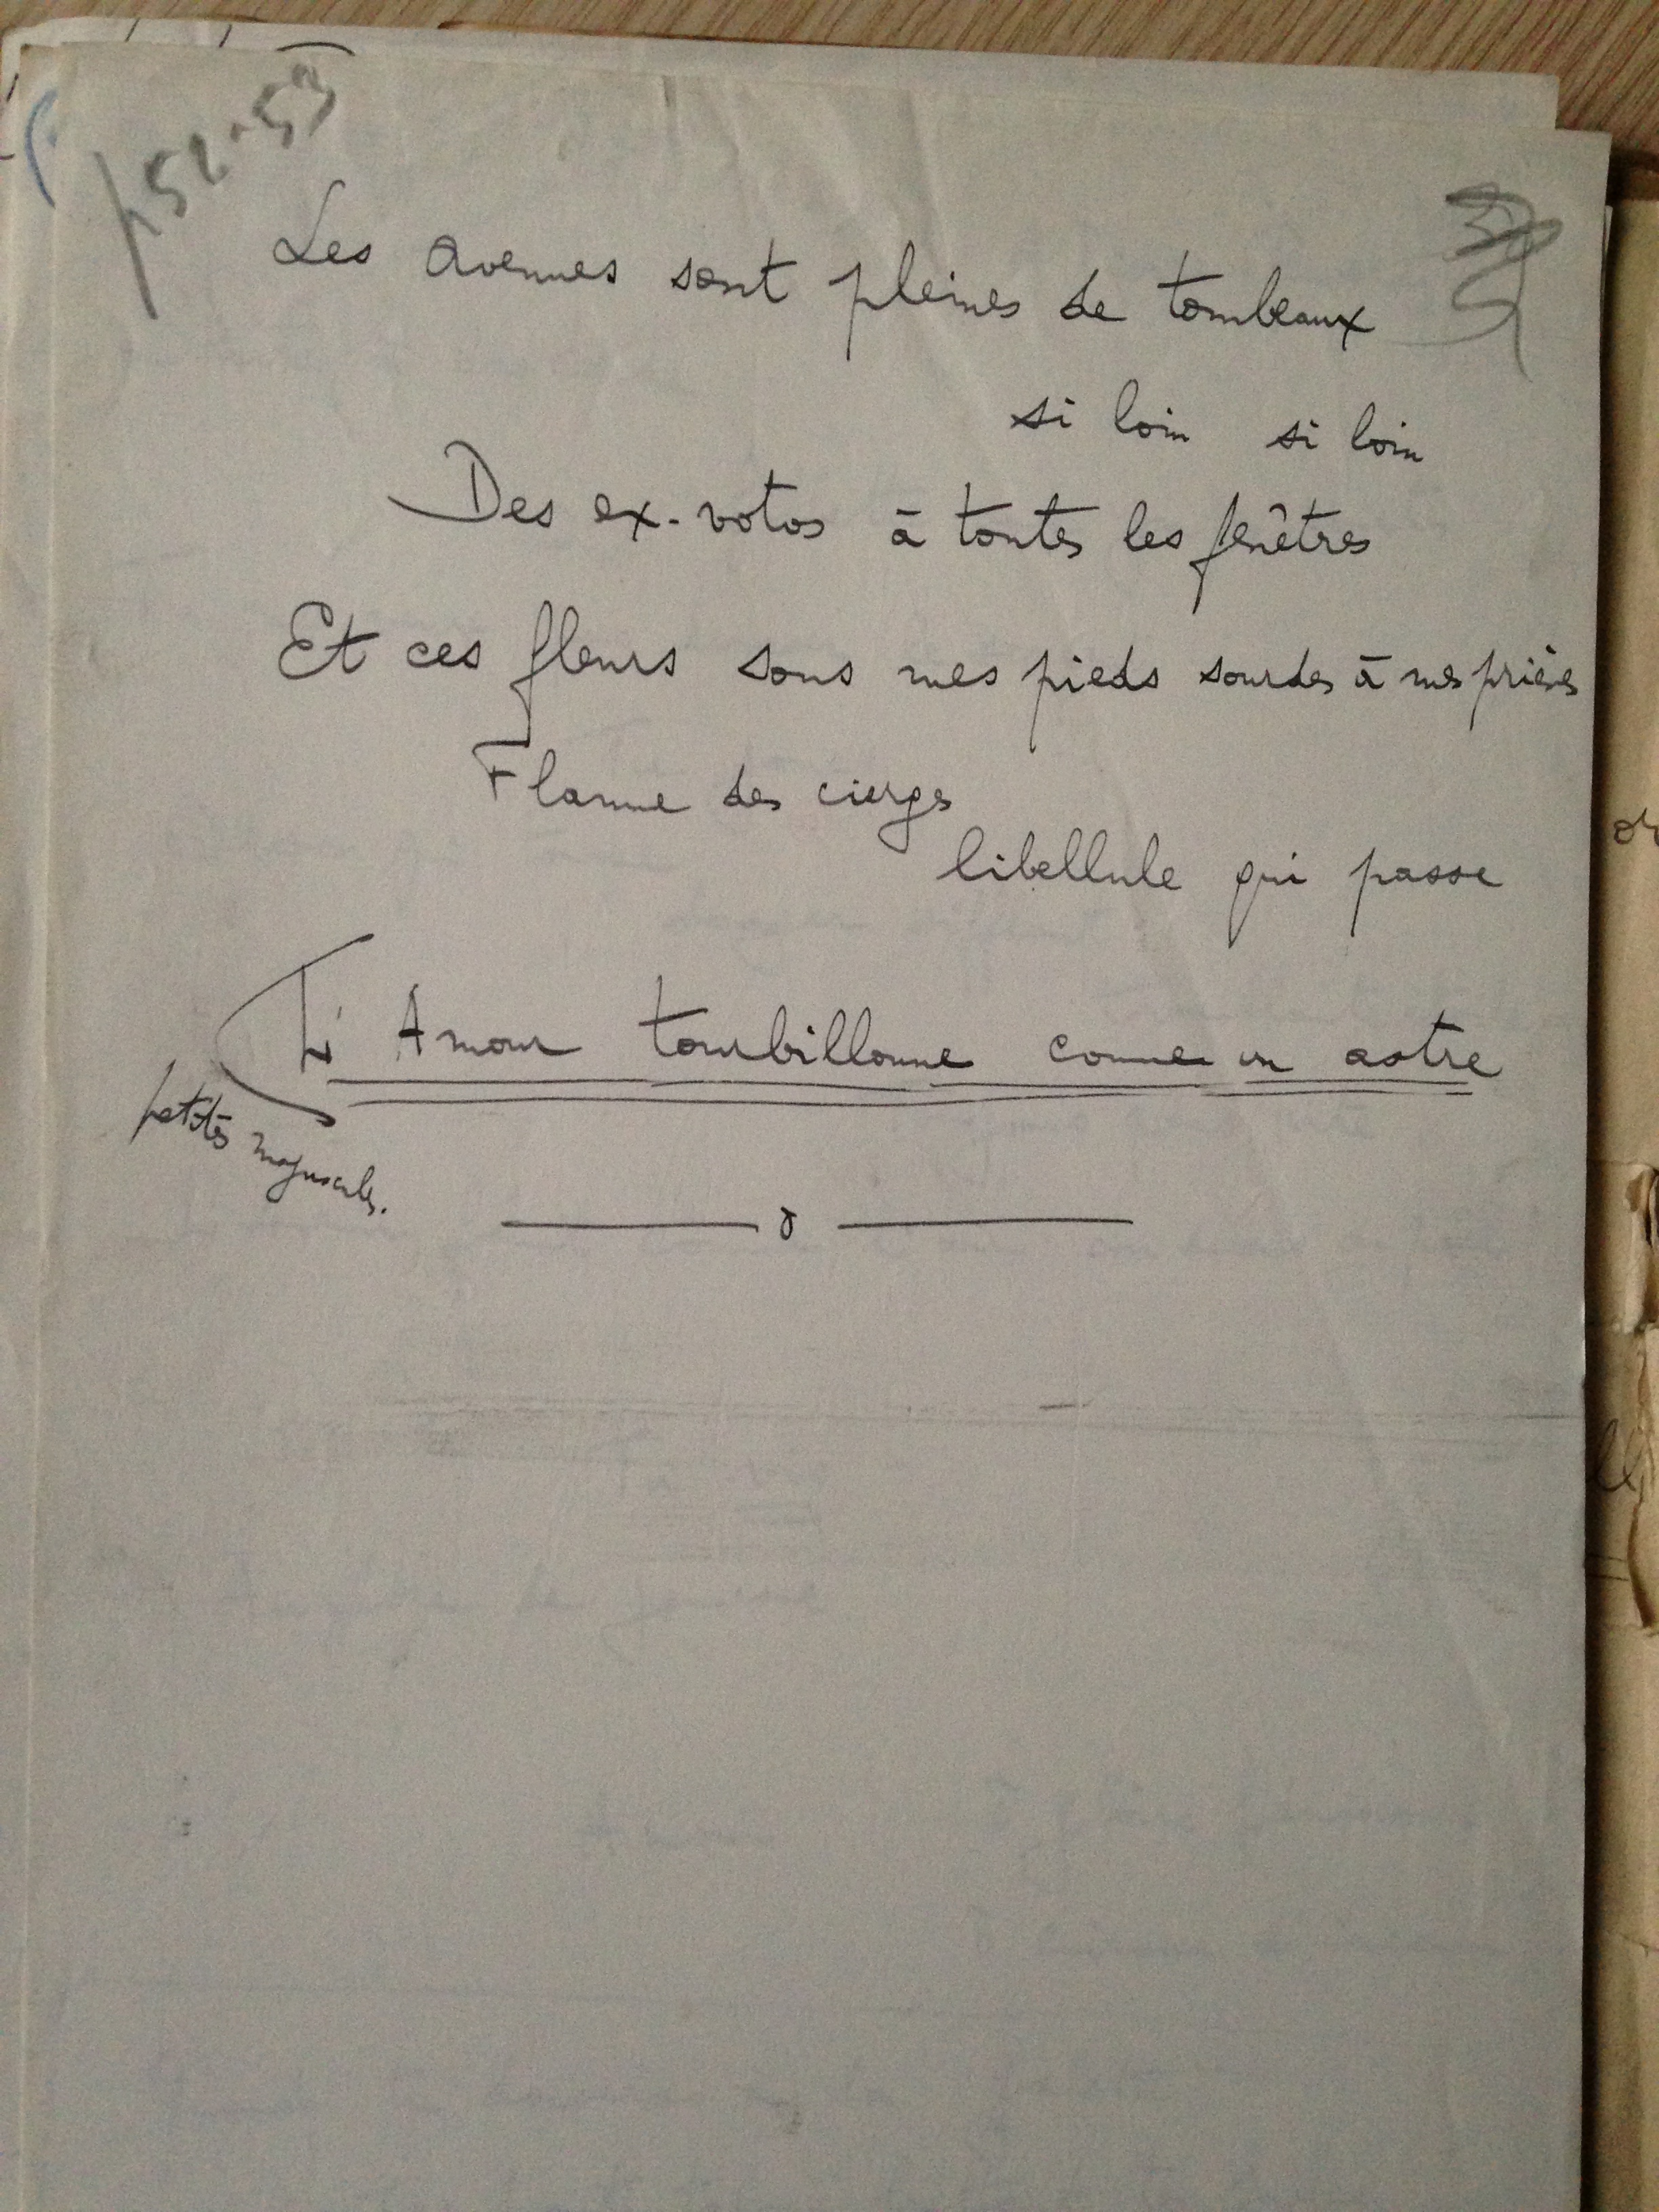 53.254
Les avenues sont pleines de tombeaux
si loin si loin
Des ex-votos à toutes les fenêtres
Et ces fleurs sous mes pieds sourdes à mes prières
Flamme des cierges
libellule qui passe
Amour tourbillonne comme un astre
petites majuscules.